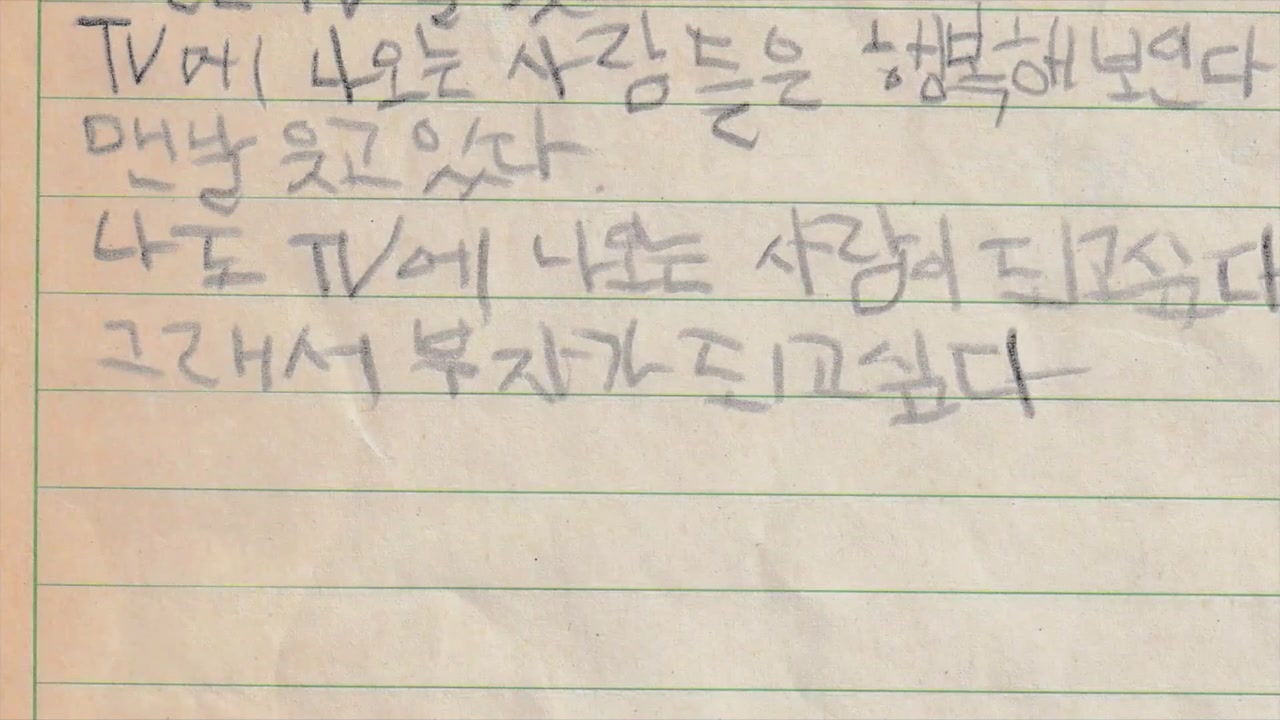 TV에 나오는 사람들은 행복해보인다
맨날 웃고 있다.
나도 TV에 나오는 사람이 되고싶다
그래서 부자가 되고싶다